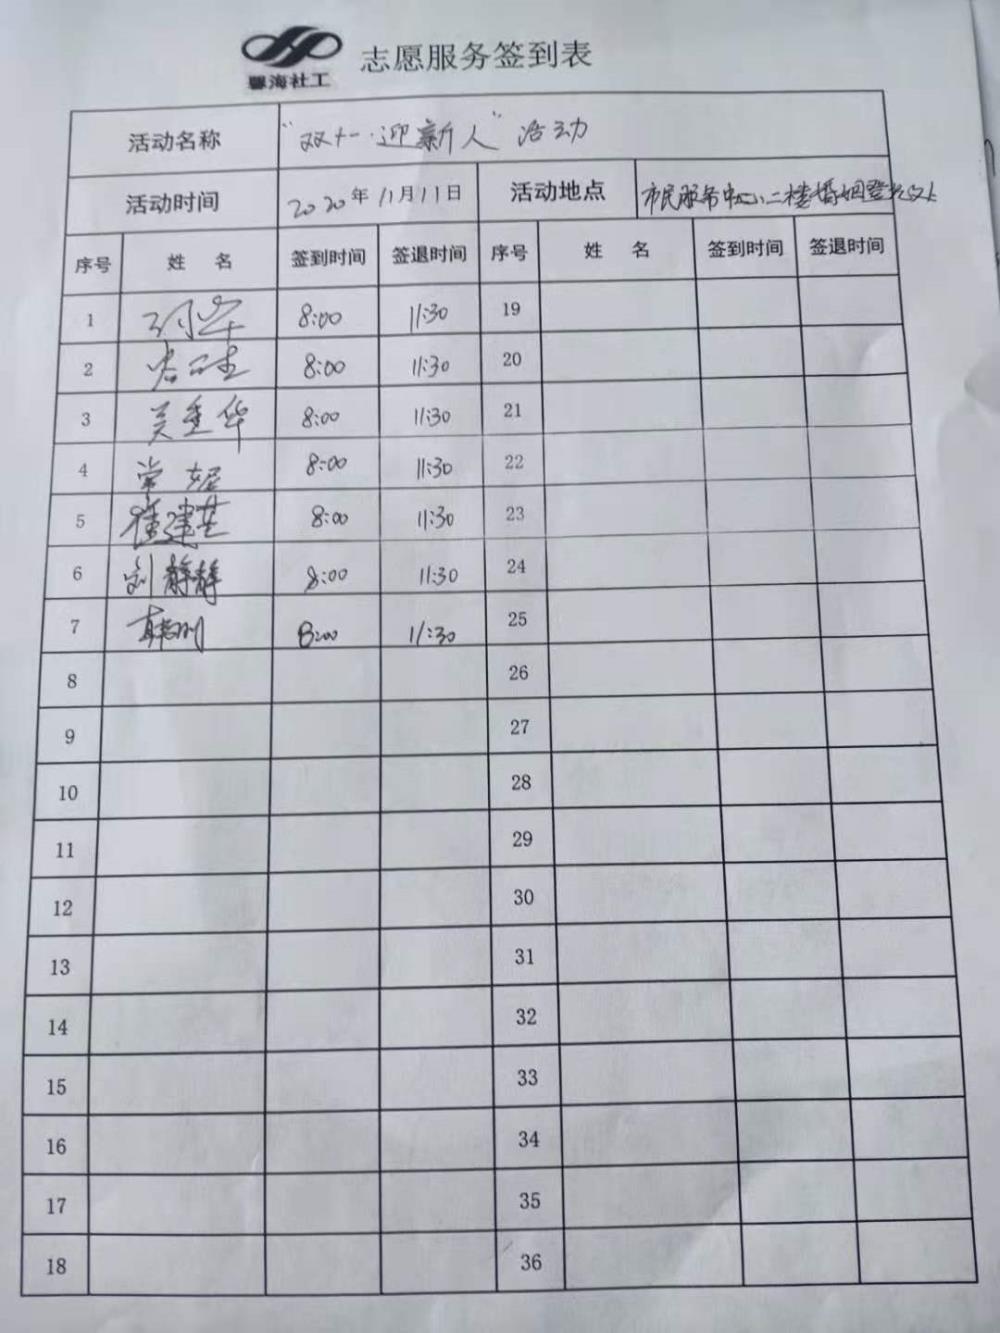 海社工
志愿服务签到表
活动名称 "双十一·迎新人"活动
活动时间 2020年11月11日 活动地点 市民服务中心二楼婚姻登记
序号 姓名 签到时间 签退时间 序号 姓名 签到时间 签退时间
1 8:00 11:30 19
2 8:00 11:30 20
3 吴重华 8:00 11:30 21
4 常妮 8:00 11:30 22
5 建芸 8:00 11:30 23
6 刘静静 8:00 11:30 24
7 8:00 11:30 25
8 26
9 27
10 28
11 29
12 30
13 31
14 32
15 33
16 34
17 35
18 36